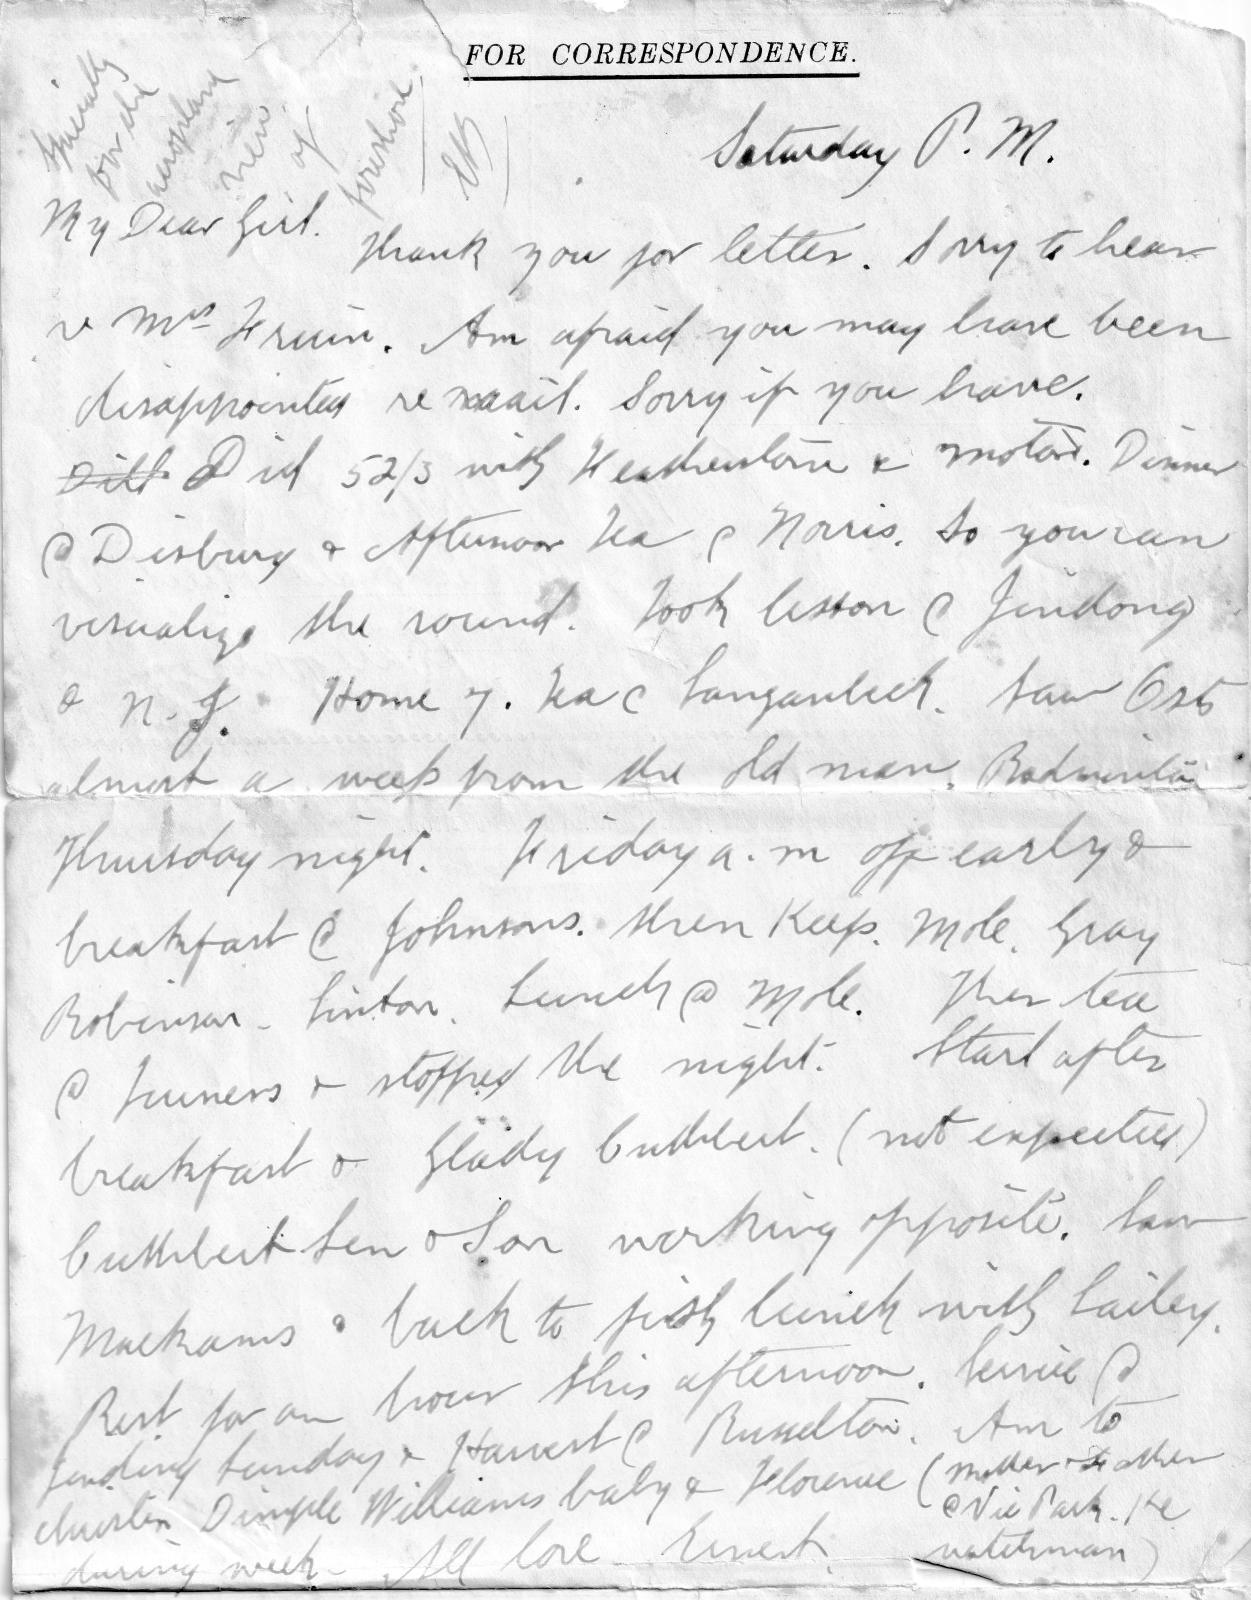 FOR CORRESPONDENCE.
Specially
for the
aeroplane
view
of
Saturday P. M.
My Dear Girl.
Thank you for letter. Sorry to hear
Mrs Am afraid you may have been
disappointed re mail. Sorry if you have.
Did 52/3 with & motor. Dinner
@ Disburg & Afternoon Tea @ Norris. So you can
visualize the round. Took lesson @ Jindong
& N. J. Home 7. Tea @ Saw
almost a week from the old man. Badminton
Thursday night. Friday a. m off early &
breakfast @ Johnsons. then Keeps. Mole. Gray
Robinson. Linton. Lunch @ Mole. Then tea
@ & stopped the night. Start after
breakfast & Glady Cuthbert. (not expected)
Cuthbert Sen & Son working opposite. Saw
Mackams & back to fish lunch with Lailey.
Rest for an hour this afternoon. @
Sunday & Harvest @ Russelton. Am to
christen Dimple Williams baby & Florence (Mother & Father
@ Vic Park. He
during week. All love Ernest. watchman)